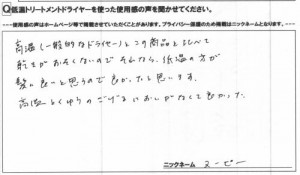 Q低温トリートメントドライヤーを使った使用感の声を聞かせてください。
----使用感の声はホームページ等で掲載させていただくことがあります。プライバシー保護のため掲載はニックネームとなります。----
高温(一般的なドライヤー)とこの商品とくらべて
乾きがおそくないのでそれなら、低温の方が
髪に良いと思うので良かったと思います。
高温とくゆうのこげるにおいがなくて良かった。
ニックネーム スーピー